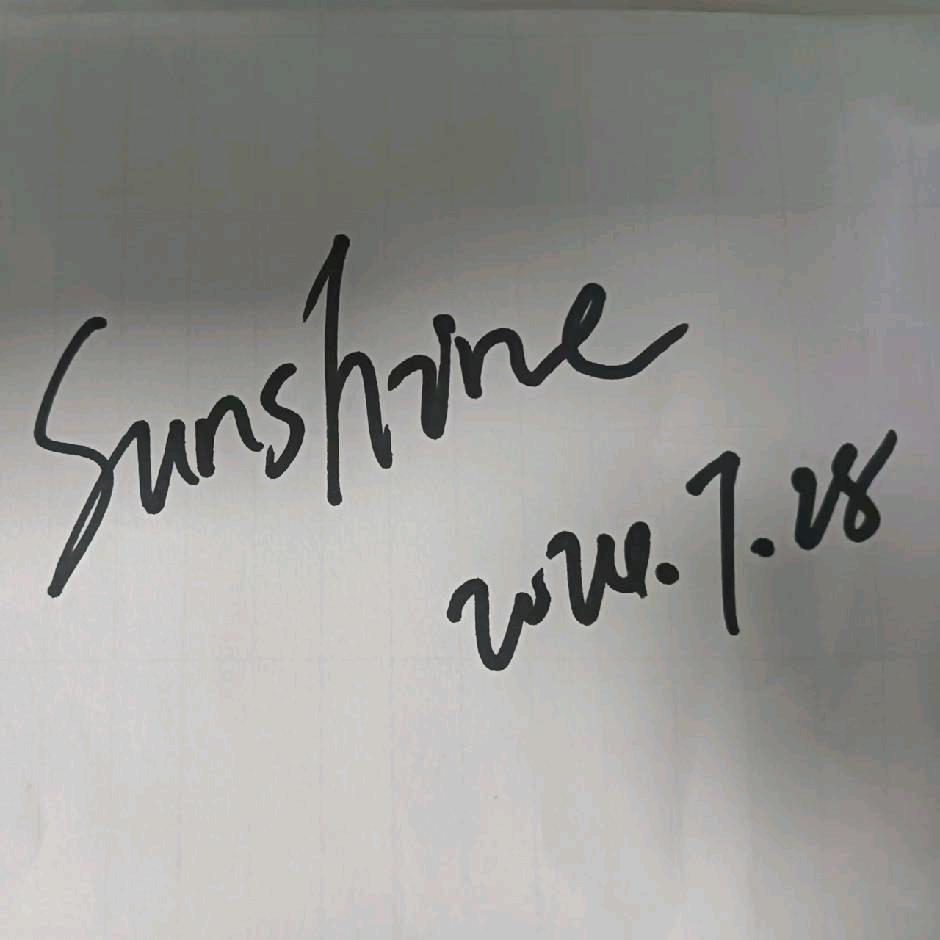 Sunshine
2024.7.28